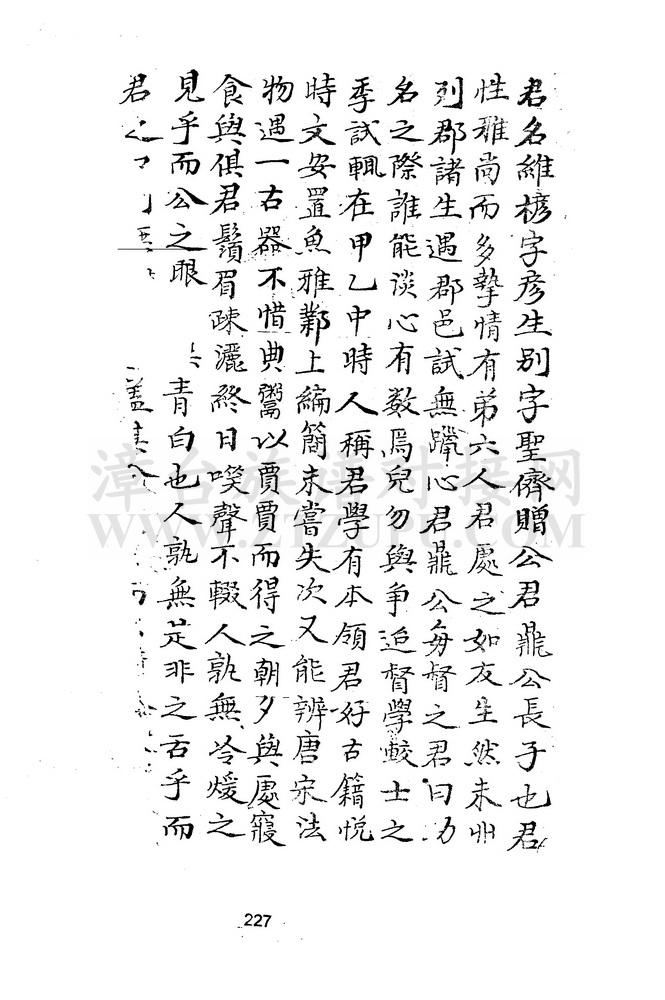 君名維㮙字彥生別字聖儕贈公君鼎公長子也君
性雅尚而多摯情有弟六人君處之如友生然未
列郡諸生遇郡邑試無躁心君鼎公每督之君曰功
名之際誰能談心有数焉兒勿與争迨督學較士之
季試輒在甲乙中時人稱君學有本領君好古籍悦
時文安置魚雅鄴上編簡未嘗失次又能辨唐宋法
物遇一古器不惜典鬻以賈賈而得之朝夕與處寢
食與俱君鬚眉疎灑終日嘆聲不輟人孰無冷煖之
見乎而公之眼 青白也人孰無是非之舌乎而
君之
蓋其
漳台族谱对接网
WWW.ZTZUPU.COM
227